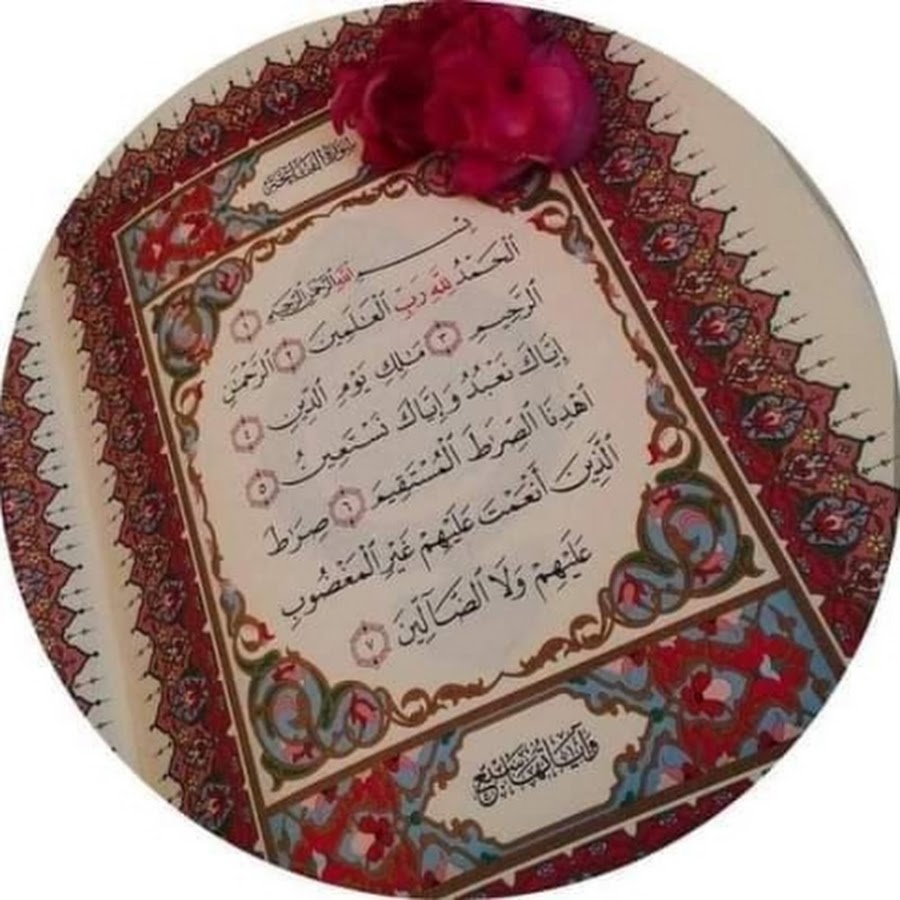 سورة الفاتحة
بِسْمِ ٱللَّهِ ٱلرَّحْمَٰنِ ٱلرَّحِيمِ ١
ٱلْحَمْدُ لِلَّهِ رَبِّ ٱلْعَٰلَمِينَ ٢ ٱلرَّحْمَٰنِ
ٱلرَّحِيمِ ٣ مَٰلِكِ يَوْمِ ٱلدِّينِ ٤
إِيَّاكَ نَعْبُدُ وَإِيَّاكَ نَسْتَعِينُ ٥
ٱهْدِنَا ٱلصِّرَٰطَ ٱلْمُسْتَقِيمَ ٦ صِرَٰطَ
ٱلَّذِينَ أَنْعَمْتَ عَلَيْهِمْ غَيْرِ ٱلْمَغْضُوبِ
عَلَيْهِمْ وَلَا ٱلضَّآلِّينَ ٧
وآياتها سبع